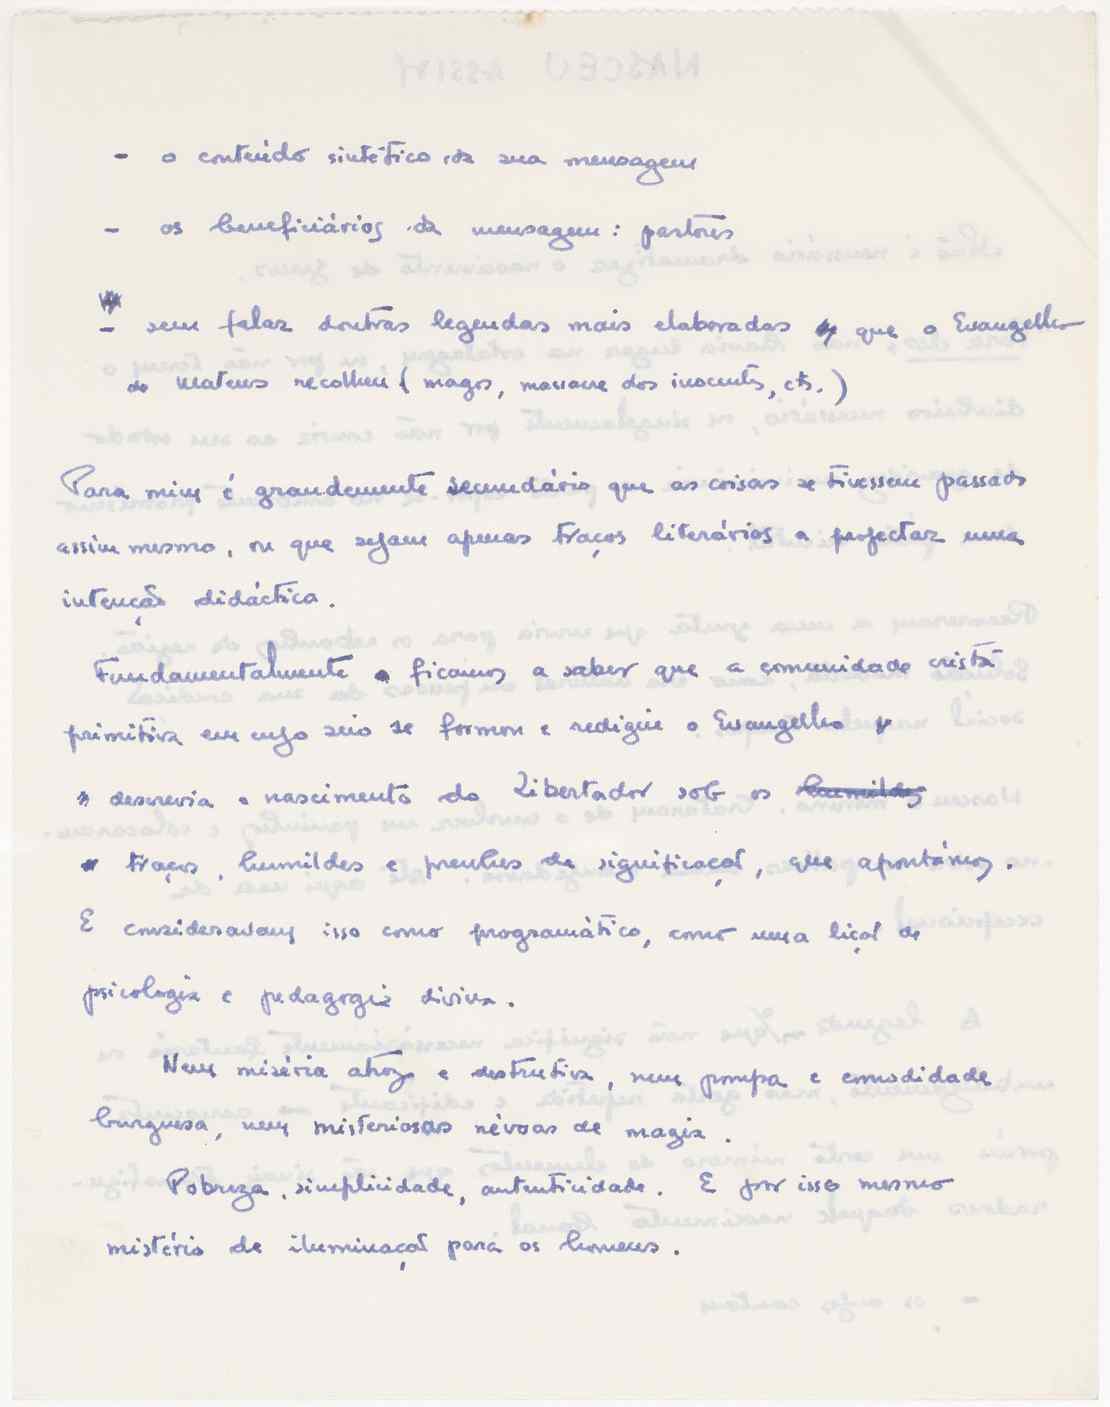 - o conteúdo sintético da sua mensagem
- os beneficiários da mensagem: pastores
- sem falar doutras legendas mais elaboradas que o Evangelho
de Mateus recolheu (magos, massacre dos inocentes, etc.)
Para mim é grandemente secundário que as coisas se tivessem passado
assim mesmo, ou que sejam apenas traços literários a projectar uma
intenção didáctica.
Fundamentalmente ficamos a saber que a comunidade cristã
primitiva em cujo seio se formou e redigiu o Evangelho
descrevia o nascimento do Libertador sob os humildes
traços, humildes e prenhes de significação, que apontámos.
E consideravam isso como programático, como uma lição de
psicologia e pedagogia divina.
Nem miséria atroz e destrutiva, nem pompa e comodidade
burguesa, nem misteriosas névoas de magia.
Pobreza, simplicidade, autenticidade. E por isso mesmo
mistério de iluminação para os homens.